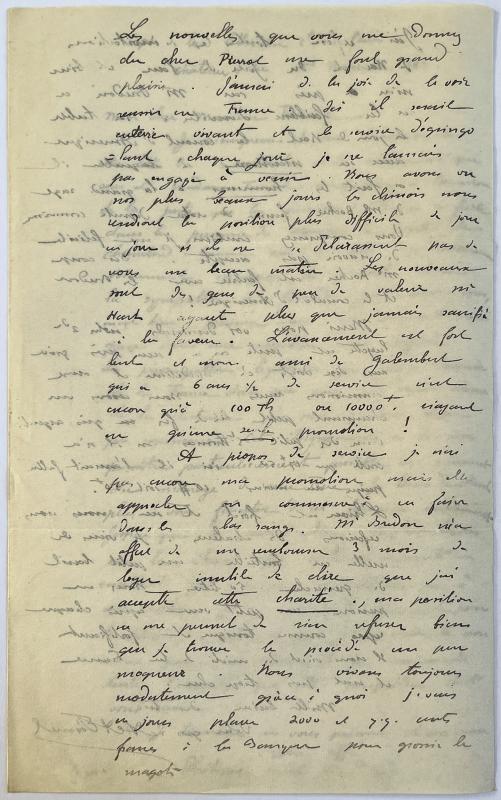 Les nouvelles que vous me donnez
du cher Pierrot me font grand
plaisir. J'aurais de la joie de le voir
revenir en France, si il serait
enterré vivant et le service dégringo
=lant chaque jour je ne l'aurais
pas engagé à venir. Nous avons eu
nos plus beaux jours les chinois nous
rendront la position plus difficile de jour
en jour et il ne se débarassent pas de
nous un beau matin. Les nouveaux
sont des gens de peu de valeur Mr
Hart ayant plus que jamais sacrifié
à la faveur. L'avancement est fort
lent et mon ami de Galembert
qui a 6 ans ½ de service n'est
encore qu'à 100 Th ou 10000 f. n'ayant
eu qu'une seule promotion !
A propos de service je n'ai
pas encore ma promotion mais elle
approche on commence à en faire
dans les bas rangs. Mr Bredon m'a
offert de me rembourser 3 mois de
loyer inutile de dire que j'ai
accepté cette charité, ma position
ne me permet de rien refuser bien
que je trouve le procédé un peu
moqueur. Nous vivons toujours
modestement grâce à quoi je vais
ces jours placer 2000 et q.q. cents
francs à la Banque pour grossir le
magot.